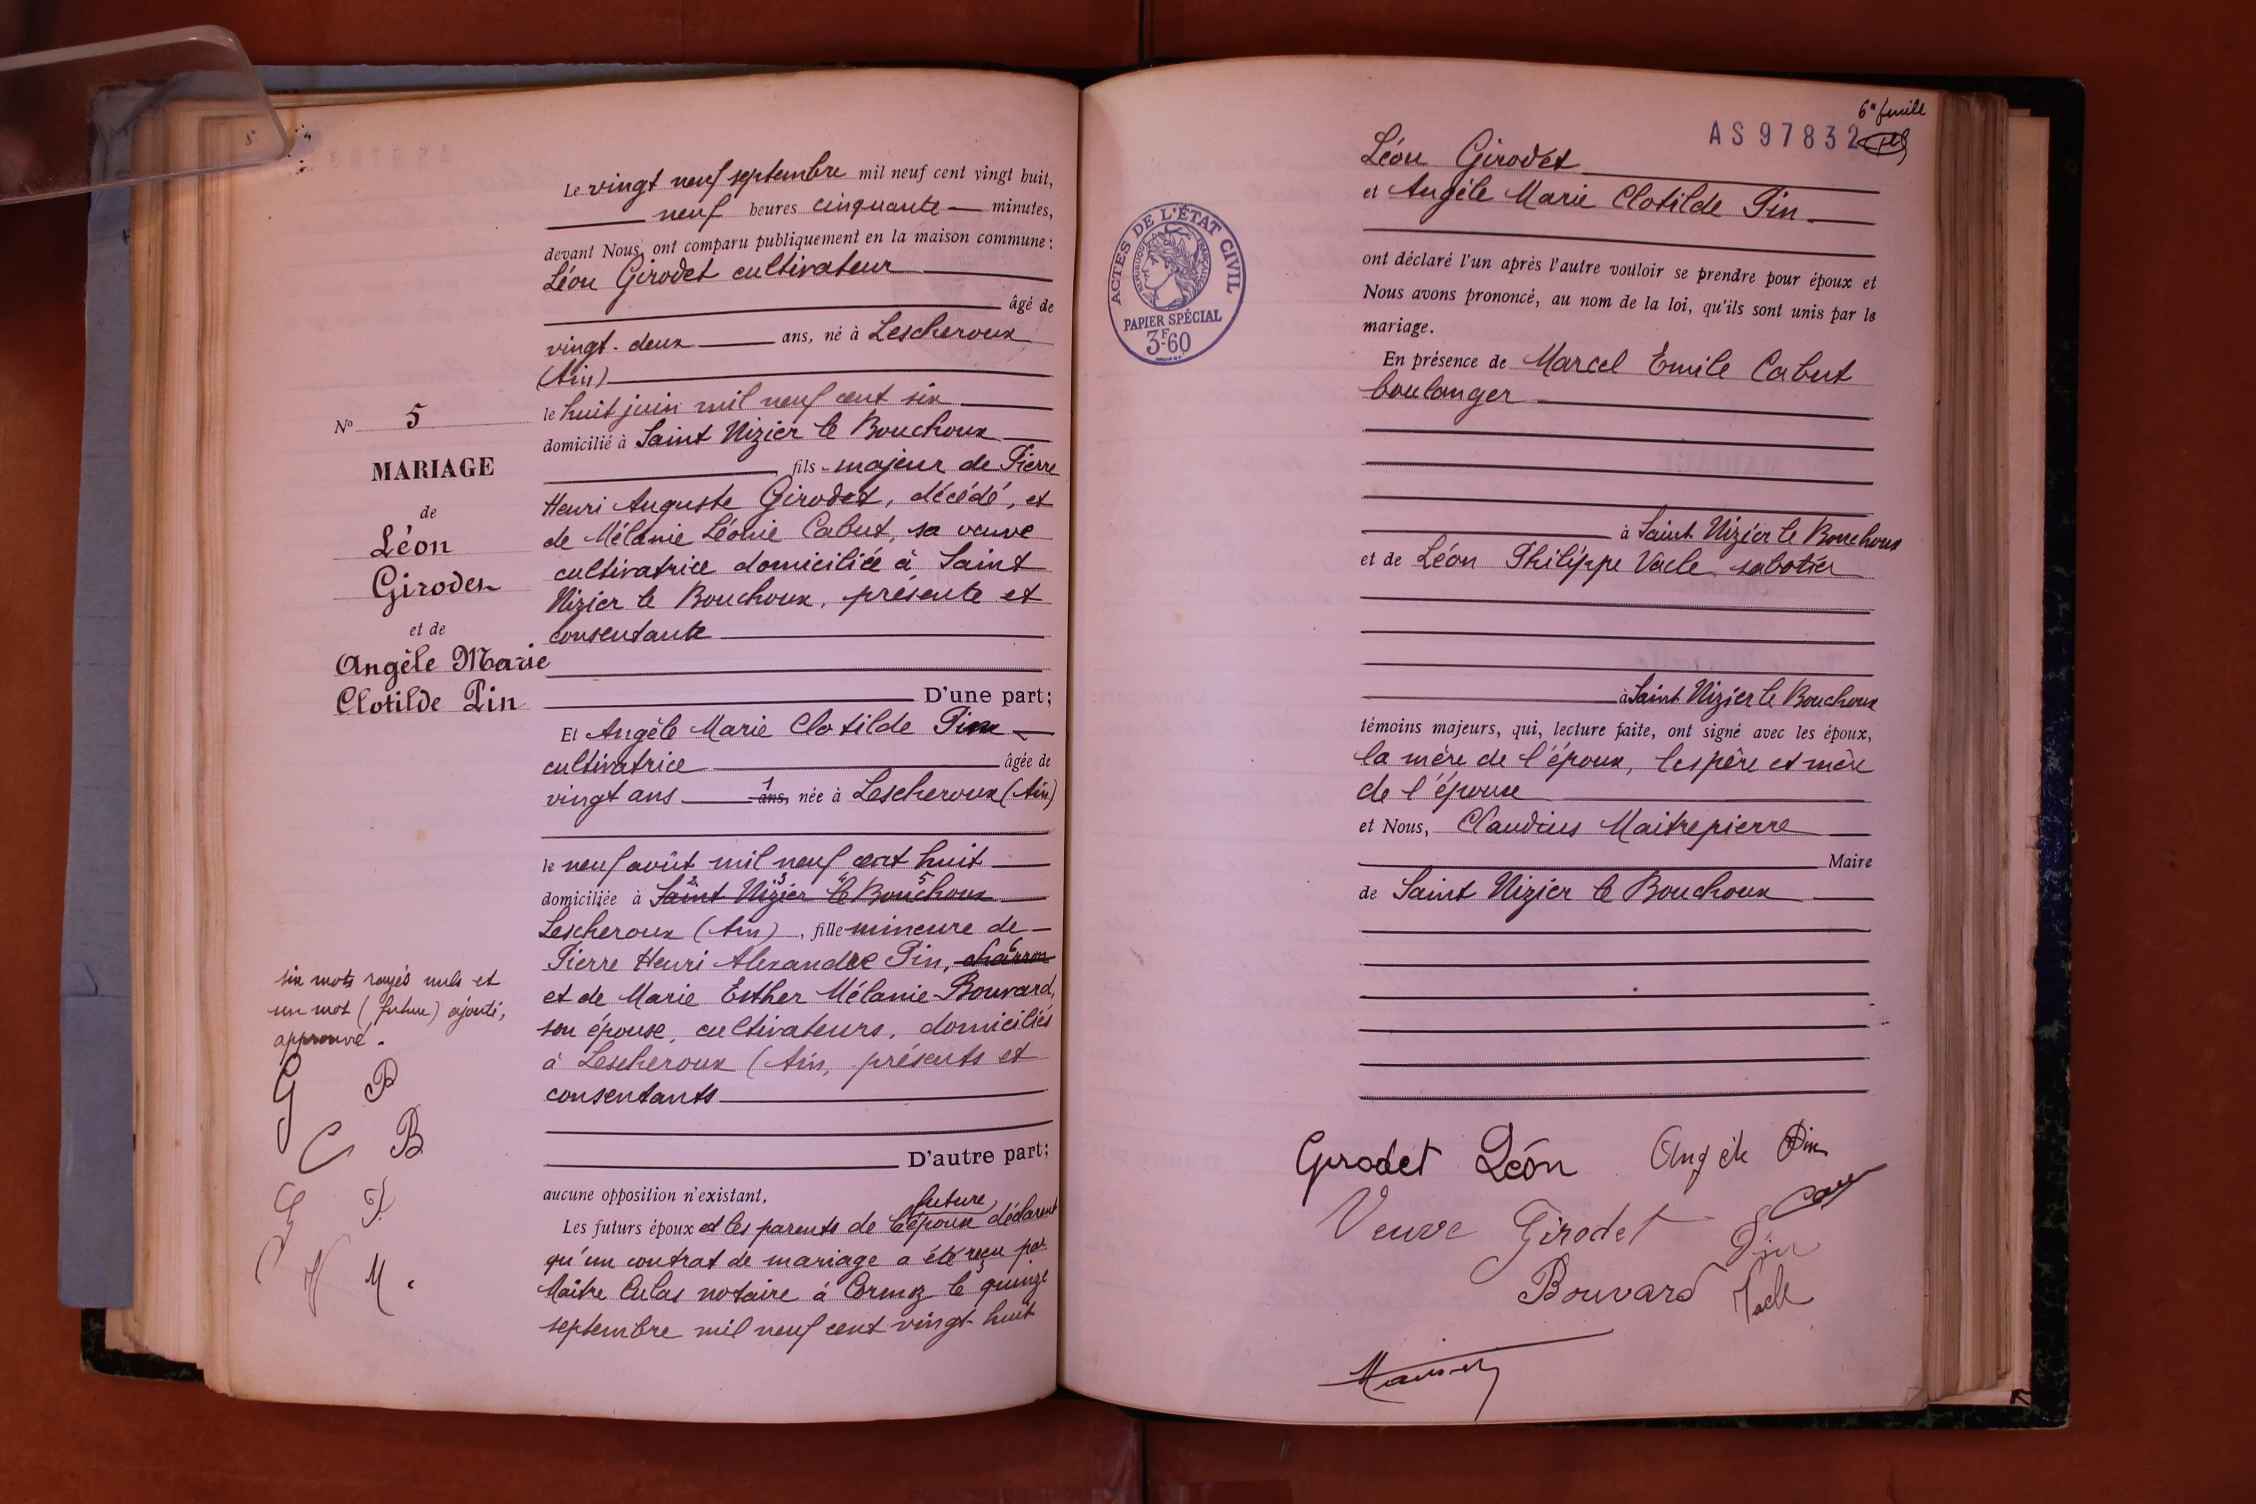 N° 5
MARIAGE
de
Léon
Girodet
et de
Angèle Marie
Clotilde Pin
six mots rayés nuls et
un mot (future) ajouté,
approuvé.
G P
C B
G P.
V M.
Le vingt neuf septembre mil neuf cent vingt huit,
neuf heures cinquante minutes,
devant Nous, ont comparu publiquement en la maison commune :
Léon Girodet cultivateur
âgé de
vingt-deux ans, né à Lescheroux
(Ain)
le huit juin mil neuf cent six
domicilié à Saint Nizier le Bouchoux
fils majeur de Pierre
Henri Auguste Girodet, décédé, et
de Mélanie Léonie Cabut, sa veuve
cultivatrice domiciliée à Saint
Nizier le Bouchoux, présente et
consentante
D'une part;
Et Angèle Marie Clotilde Pin
cultivatrice âgée de
1
vingt ans ans, née à Lescheroux (Ain)
le neuf août mil neuf cent huit
2 3 4 5
domiciliée à Saint Nizier le Bouchoux
Lescheroux (Ain), fille mineure de
6
Pierre Henri Alexandre Pin, charron
et de Marie Esther Mélanie Bouvard,
son épouse, cultivateurs, domiciliés
à Lescheroux (Ain, présents et
consentants
D'autre part;
aucune opposition n'existant,
future
Les futurs époux et les parents de l'époux déclarent
qu'un contrat de mariage a été reçu par
Maître Culas notaire à Cormoz le quinze
septembre mil neuf cent vingt-huit
6e feuille
AS 97832
ACTES DE L'ÉTAT CIVIL
RÉPUBLIQUE FRANÇAISE
PAPIER SPÉCIAL
3F60
Léon Girodet
et Angèle Marie Clotilde Pin
ont déclaré l'un après l'autre vouloir se prendre pour époux et
Nous avons prononcé, au nom de la loi, qu'ils sont unis par le
mariage.
En présence de Marcel Emile Cabut
boulanger
à Saint Nizier le Bouchoux
et de Léon Philippe Vacle sabotier
à Saint Nizier le Bouchoux
témoins majeurs, qui, lecture faite, ont signé avec les époux,
la mère de l'époux, les père et mère
de l'épouse
et Nous, Claudius Maitrepierre
Maire
de Saint Nizier le Bouchoux
Girodet Léon Angèle Pin
Veuve Girodet Pin
Bouvard Vacle